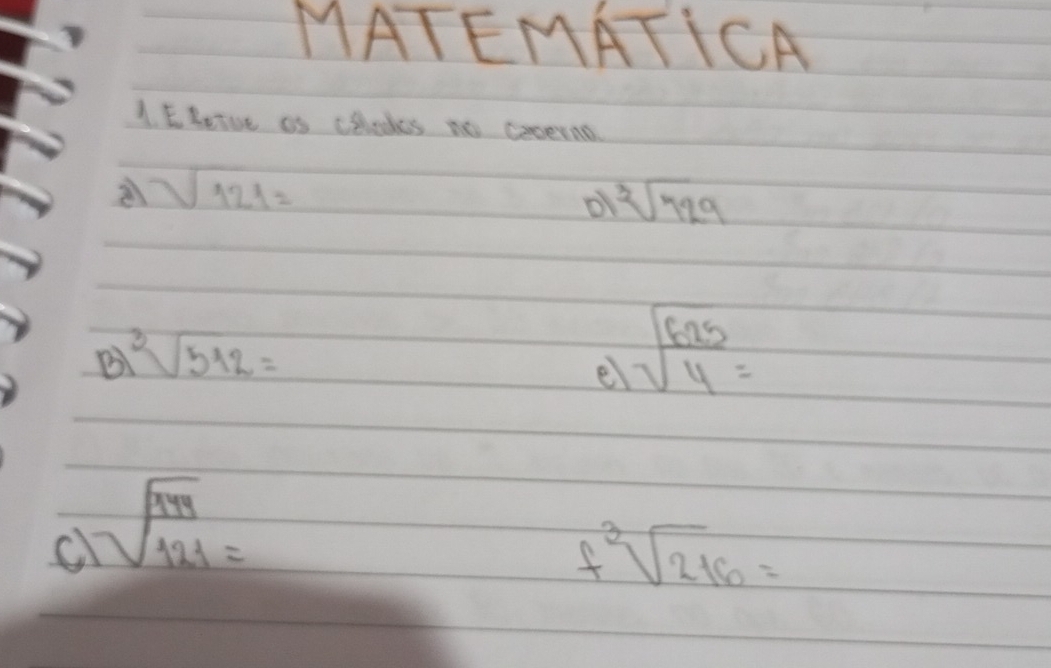 MATEMÁTICA
1. Efetue os cálculos no caderno.
a) √121 =
D) ³√729
B) ³√512 =
e) √625/4 =
c) √144/121 =
f ³√216 =